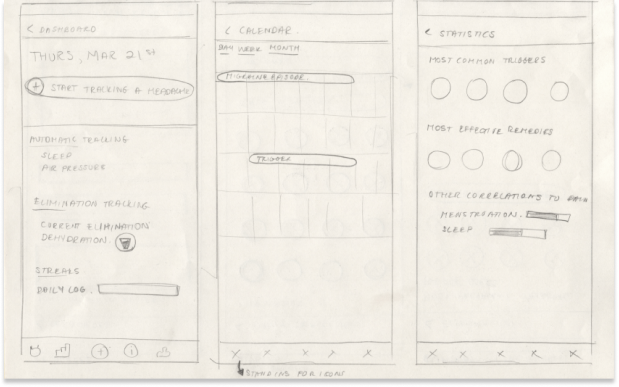 < DASHBOARD
THURS, MAR 21ST
+ START TRACKING A HEADACHE
AUTOMATIC TRACKING
SLEEP
AIR PRESSURE
ELIMINATION TRACKING
CURRENT ELIMINATION
DEHYDRATION
STREAKS
DAILY LOG
< CALENDAR
DAY WEEK MONTH
MIGRAINE EPISODE
TRIGGER
X X X X X
STANDINS FOR ICONS
< STATISTICS
MOST COMMON TRIGGERS
MOST EFFECTIVE REMEDIES
OTHER CORRELATIONS TO DATA
MENSTRUATION
SLEEP
X X X X X